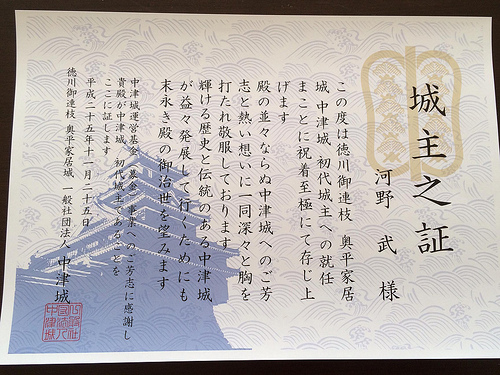 城主之証
河野 武 様
この度は徳川御連枝 奥平家居
城 中津城 初代城主への就任
まことに祝着至極にて存じ上
げます
殿の並々ならぬ中津城へのご芳
志と熱い想いに一同深々と胸を
打たれ敬服しております
輝ける歴史と伝統のある中津城
が益々発展して行くためにも
末永き殿の御治世を望みます
中津城運営基金 募金 事業へのご芳志に感謝し
貴殿が中津城 初代城主であることを
ここに証します
平成二十五年十一月二十五日
徳川御連枝 奥平家居城 一般社団法人 中津城